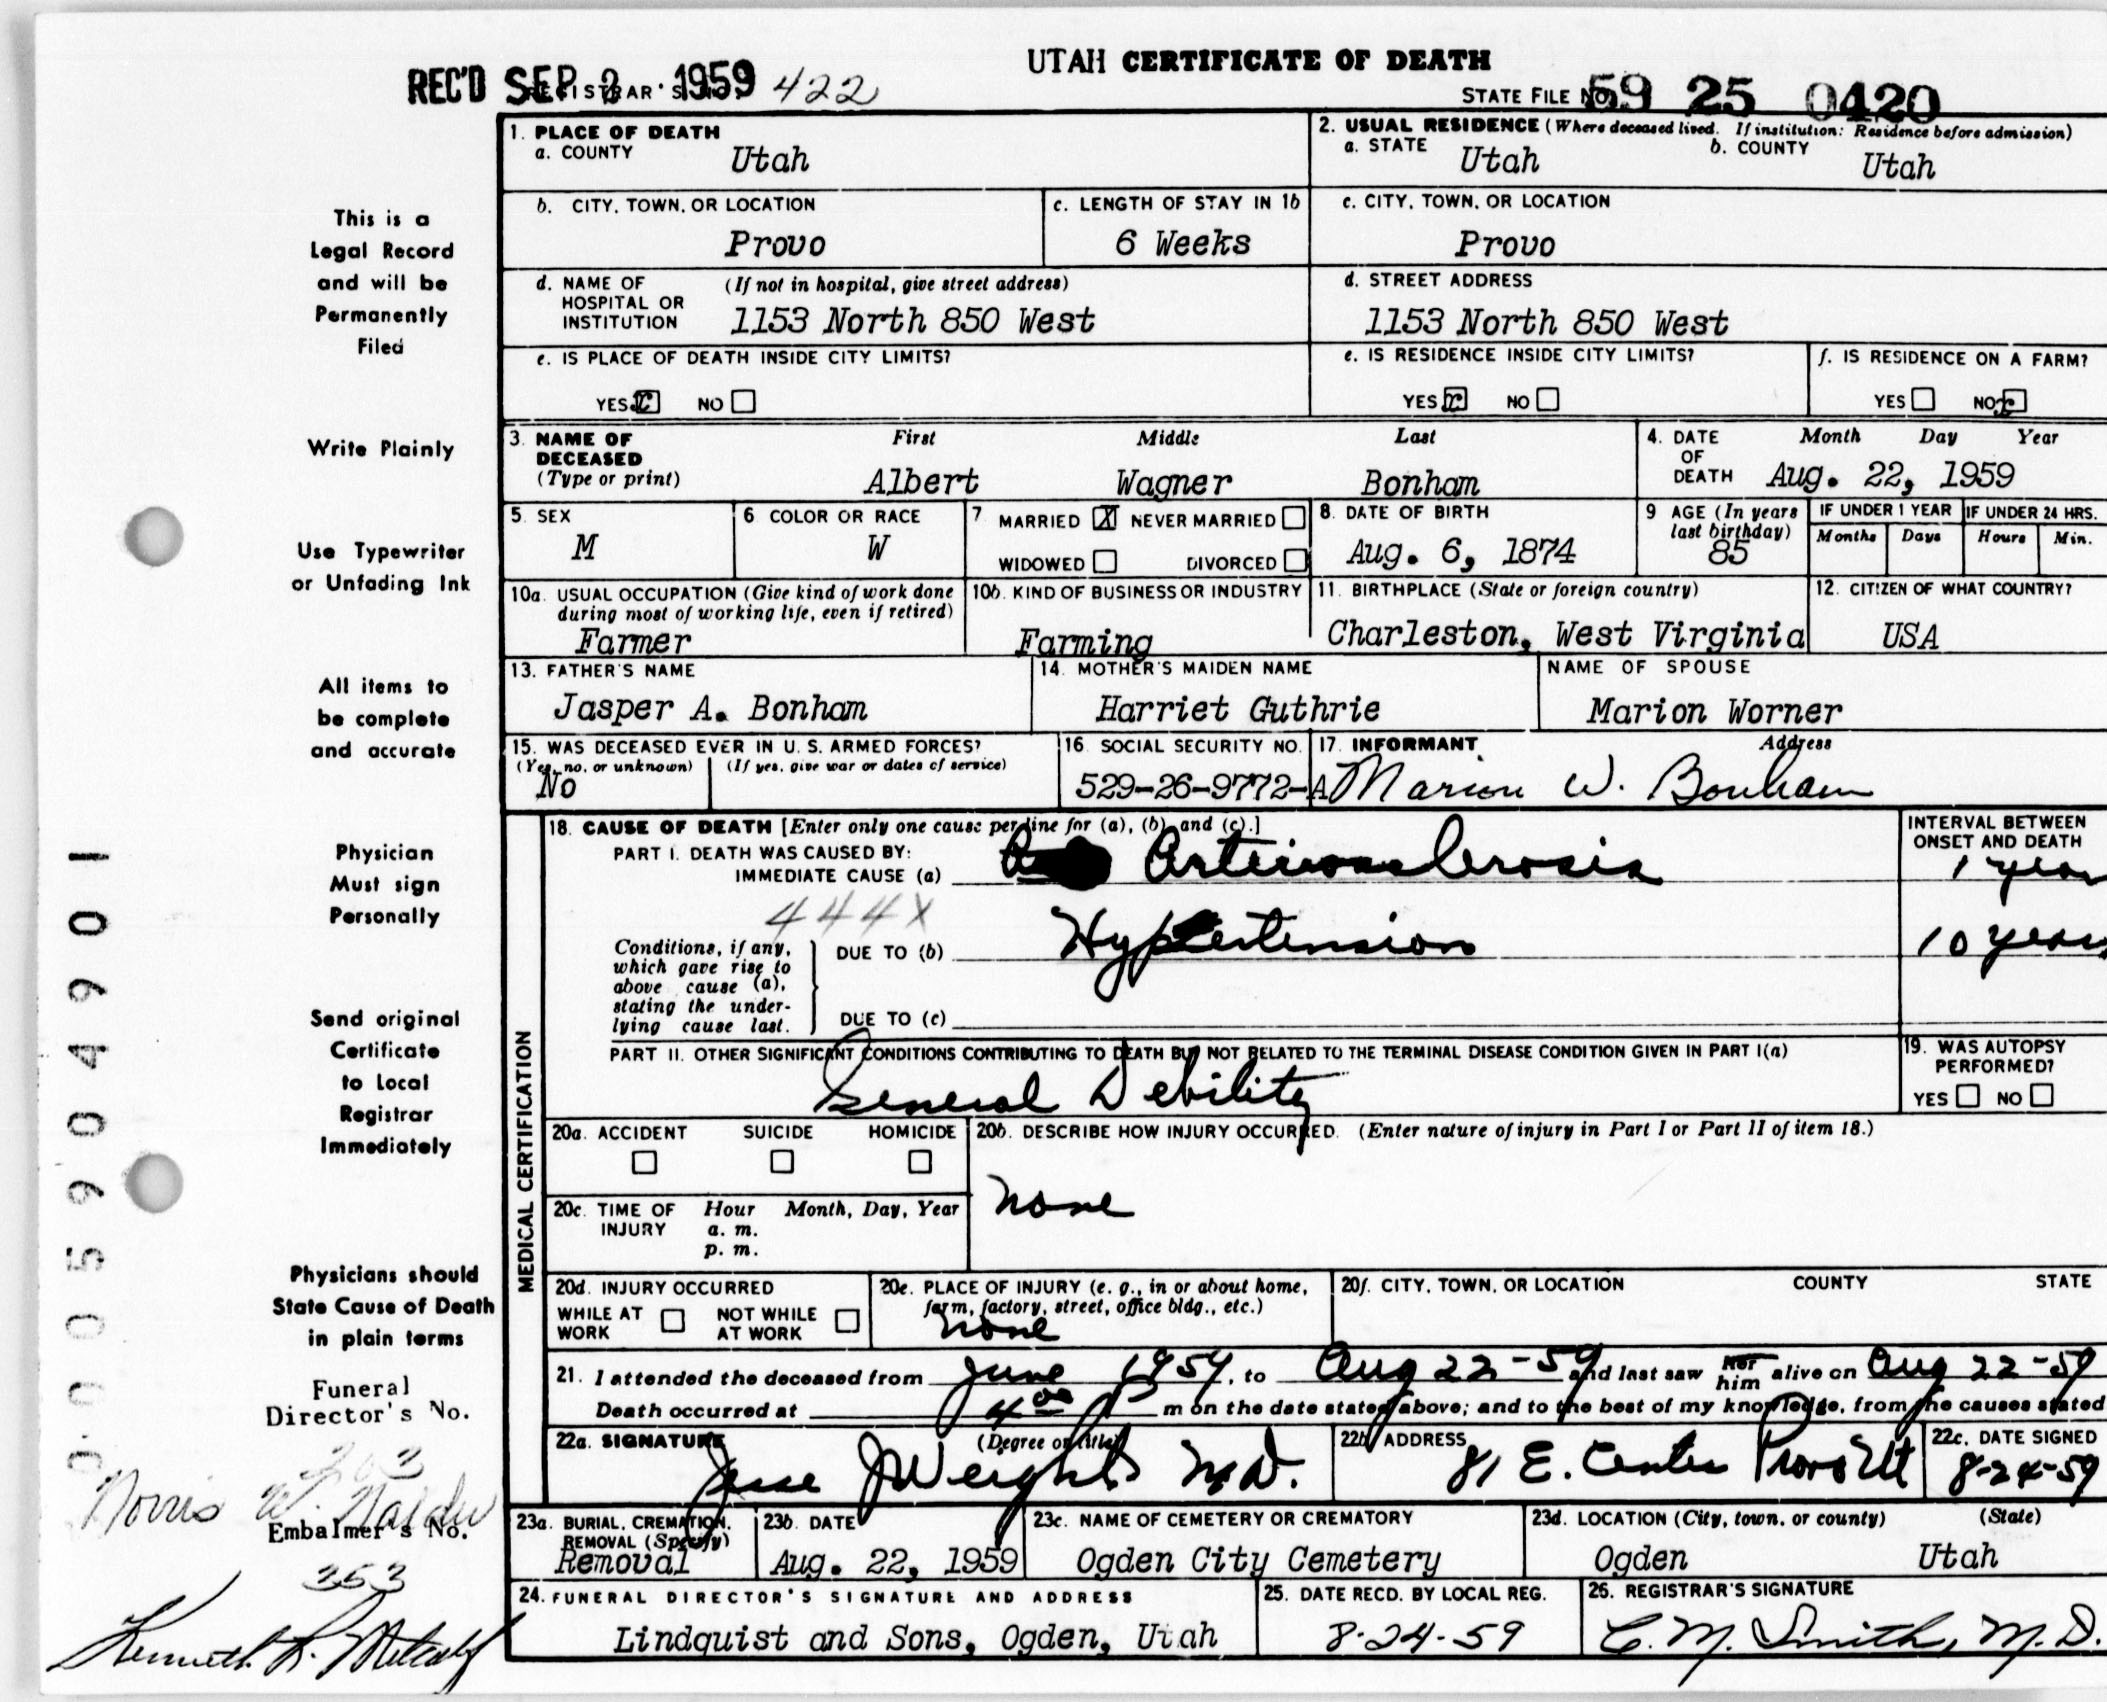 UTAH CERTIFICATE OF DEATH
REC'D SEP 2 1959 422
STATE FILE NO. 59 25 0420
1. PLACE OF DEATH
a. COUNTY Utah
2. USUAL RESIDENCE (Where deceased lived. If institution: Residence before admission)
a. STATE Utah b. COUNTY Utah
b. CITY, TOWN, OR LOCATION Provo
c. LENGTH OF STAY IN 1b 6 Weeks
c. CITY, TOWN, OR LOCATION Provo
d. NAME OF HOSPITAL OR INSTITUTION (If not in hospital, give street address)
1153 North 850 West
d. STREET ADDRESS
1153 North 850 West
e. IS PLACE OF DEATH INSIDE CITY LIMITS?
YES NO
e. IS RESIDENCE INSIDE CITY LIMITS?
YES NO
f. IS RESIDENCE ON A FARM?
YES NO
3. NAME OF DECEASED (Type or print)
First Middle Last
Albert Wagner Bonham
4. DATE OF DEATH Month Day Year
Aug. 22, 1959
5. SEX M
6 COLOR OR RACE W
7 MARRIED X NEVER MARRIED
WIDOWED DIVORCED
8. DATE OF BIRTH Aug. 6, 1874
9 AGE (In years last birthday) 85
IF UNDER 1 YEAR Months Days
IF UNDER 24 HRS. Hours Min.
10a. USUAL OCCUPATION (Give kind of work done during most of working life, even if retired)
Farmer
10b. KIND OF BUSINESS OR INDUSTRY
Farming
11. BIRTHPLACE (State or foreign country)
Charleston, West Virginia
12. CITIZEN OF WHAT COUNTRY?
USA
13. FATHER'S NAME
Jasper A. Bonham
14. MOTHER'S MAIDEN NAME
Harriet Guthrie
NAME OF SPOUSE
Marion Worner
15. WAS DECEASED EVER IN U. S. ARMED FORCES?
(Yes, no, or unknown) (If yes, give war or dates of service)
No
16. SOCIAL SECURITY NO.
529-26-9772-A
17. INFORMANT Address
Marion W. Bonham
MEDICAL CERTIFICATION
18. CAUSE OF DEATH [Enter only one cause per line for (a), (b), and (c).]
PART I. DEATH WAS CAUSED BY:
IMMEDIATE CAUSE (a) Arteriosclerosis
INTERVAL BETWEEN ONSET AND DEATH
1 year
444X
Conditions, if any, which gave rise to above cause (a), stating the underlying cause last.
DUE TO (b) Hypertension
10 years
DUE TO (c)
PART II. OTHER SIGNIFICANT CONDITIONS CONTRIBUTING TO DEATH BUT NOT RELATED TO THE TERMINAL DISEASE CONDITION GIVEN IN PART I(a)
General Debility
19. WAS AUTOPSY PERFORMED?
YES NO
20a. ACCIDENT SUICIDE HOMICIDE
20b. DESCRIBE HOW INJURY OCCURRED. (Enter nature of injury in Part I or Part II of item 18.)
none
20c. TIME OF INJURY Hour Month, Day, Year
a. m.
p. m.
20d. INJURY OCCURRED
WHILE AT WORK NOT WHILE AT WORK
20e. PLACE OF INJURY (e. g., in or about home, farm, factory, street, office bldg., etc.)
none
20f. CITY, TOWN, OR LOCATION COUNTY STATE
21. I attended the deceased from June 1959, to Aug 22-59 and last saw her him alive on Aug 22-59
Death occurred at 4 00 P m on the date stated above; and to the best of my knowledge, from the causes stated
22a. SIGNATURE (Degree or title)
Jesse J Weight M.D.
22b. ADDRESS
81 E. Center Provo Ut
22c. DATE SIGNED
8-24-59
23a. BURIAL, CREMATION, REMOVAL (Specify)
Removal
23b. DATE
Aug. 22, 1959
23c. NAME OF CEMETERY OR CREMATORY
Ogden City Cemetery
23d. LOCATION (City, town, or county) (State)
Ogden Utah
24. FUNERAL DIRECTOR'S SIGNATURE AND ADDRESS
Lindquist and Sons, Ogden, Utah
25. DATE RECD. BY LOCAL REG.
8-24-59
26. REGISTRAR'S SIGNATURE
C. M. Smith, M.D.
This is a
Legal Record
and will be
Permanently
Filed
Write Plainly
Use Typewriter
or Unfading Ink
All items to
be complete
and accurate
Physician
Must sign
Personally
Send original
Certificate
to Local
Registrar
Immediately
Physicians should
State Cause of Death
in plain terms
Funeral
Director's No.
Norris W.
Embalmer's No.
353
Kenneth R. Metcalf
0005904901